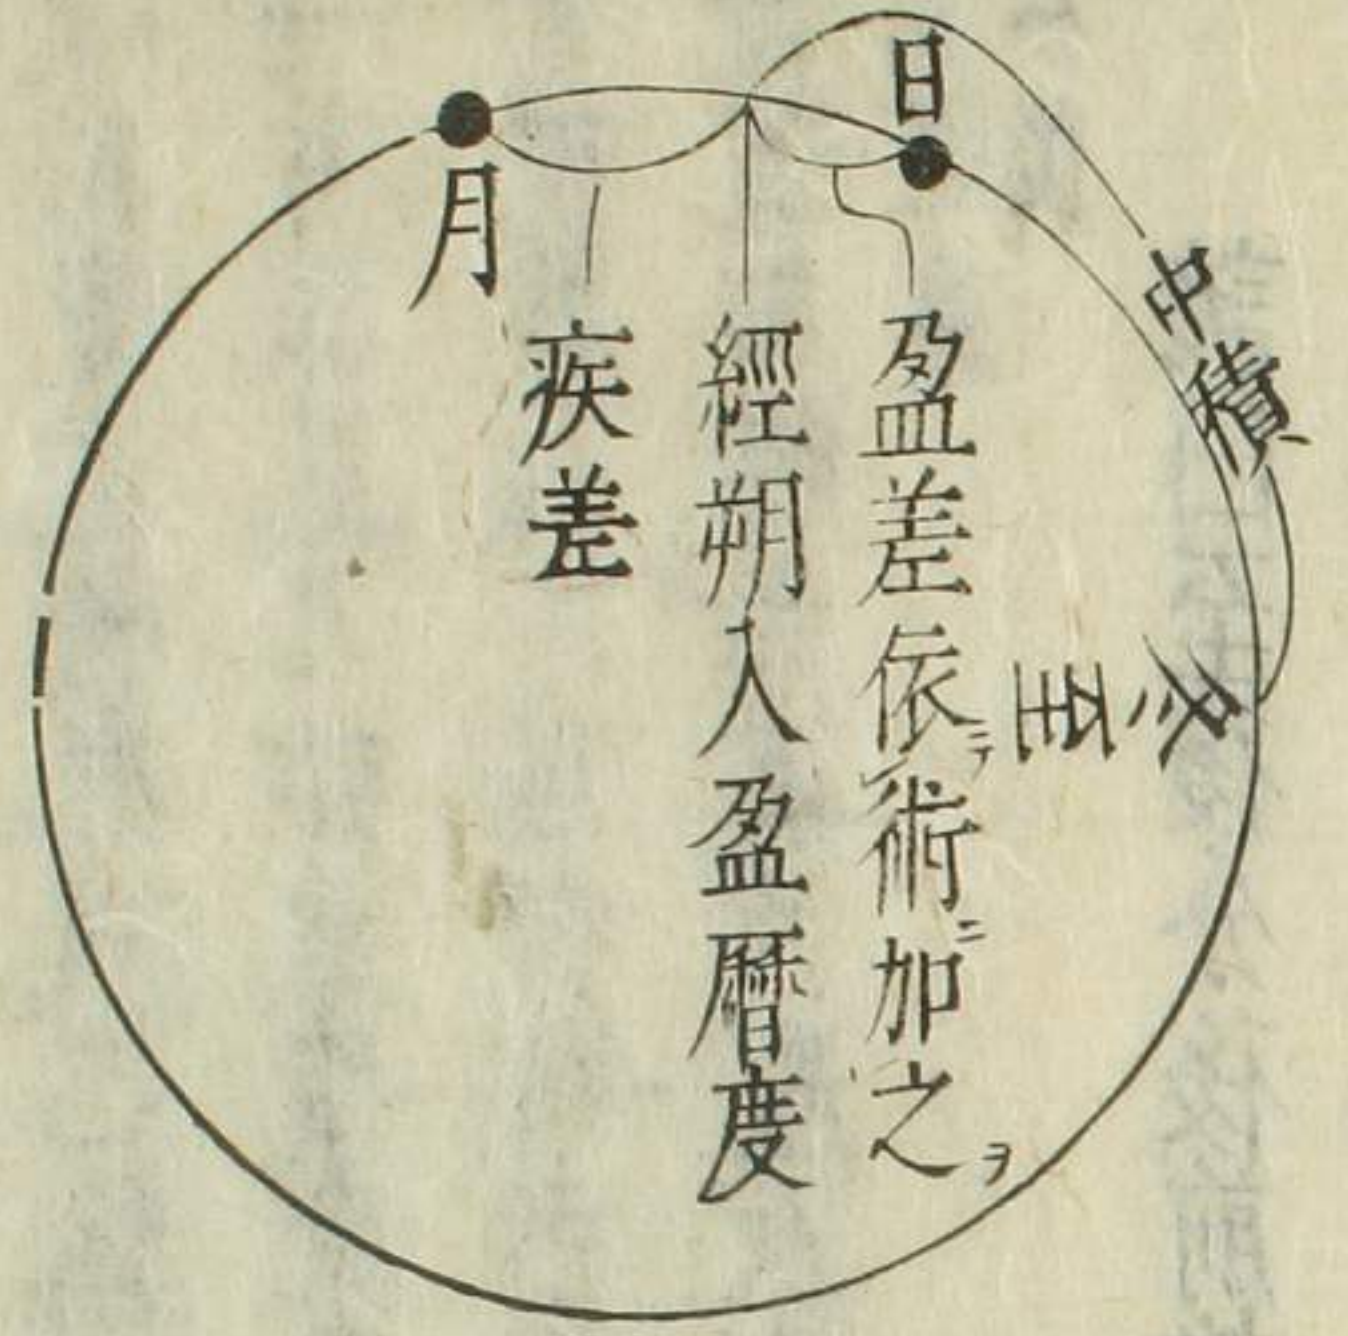 日
中積
冬至
盈差依テ術ニ加之ヲ
經朔入盈曆度
疾差
月